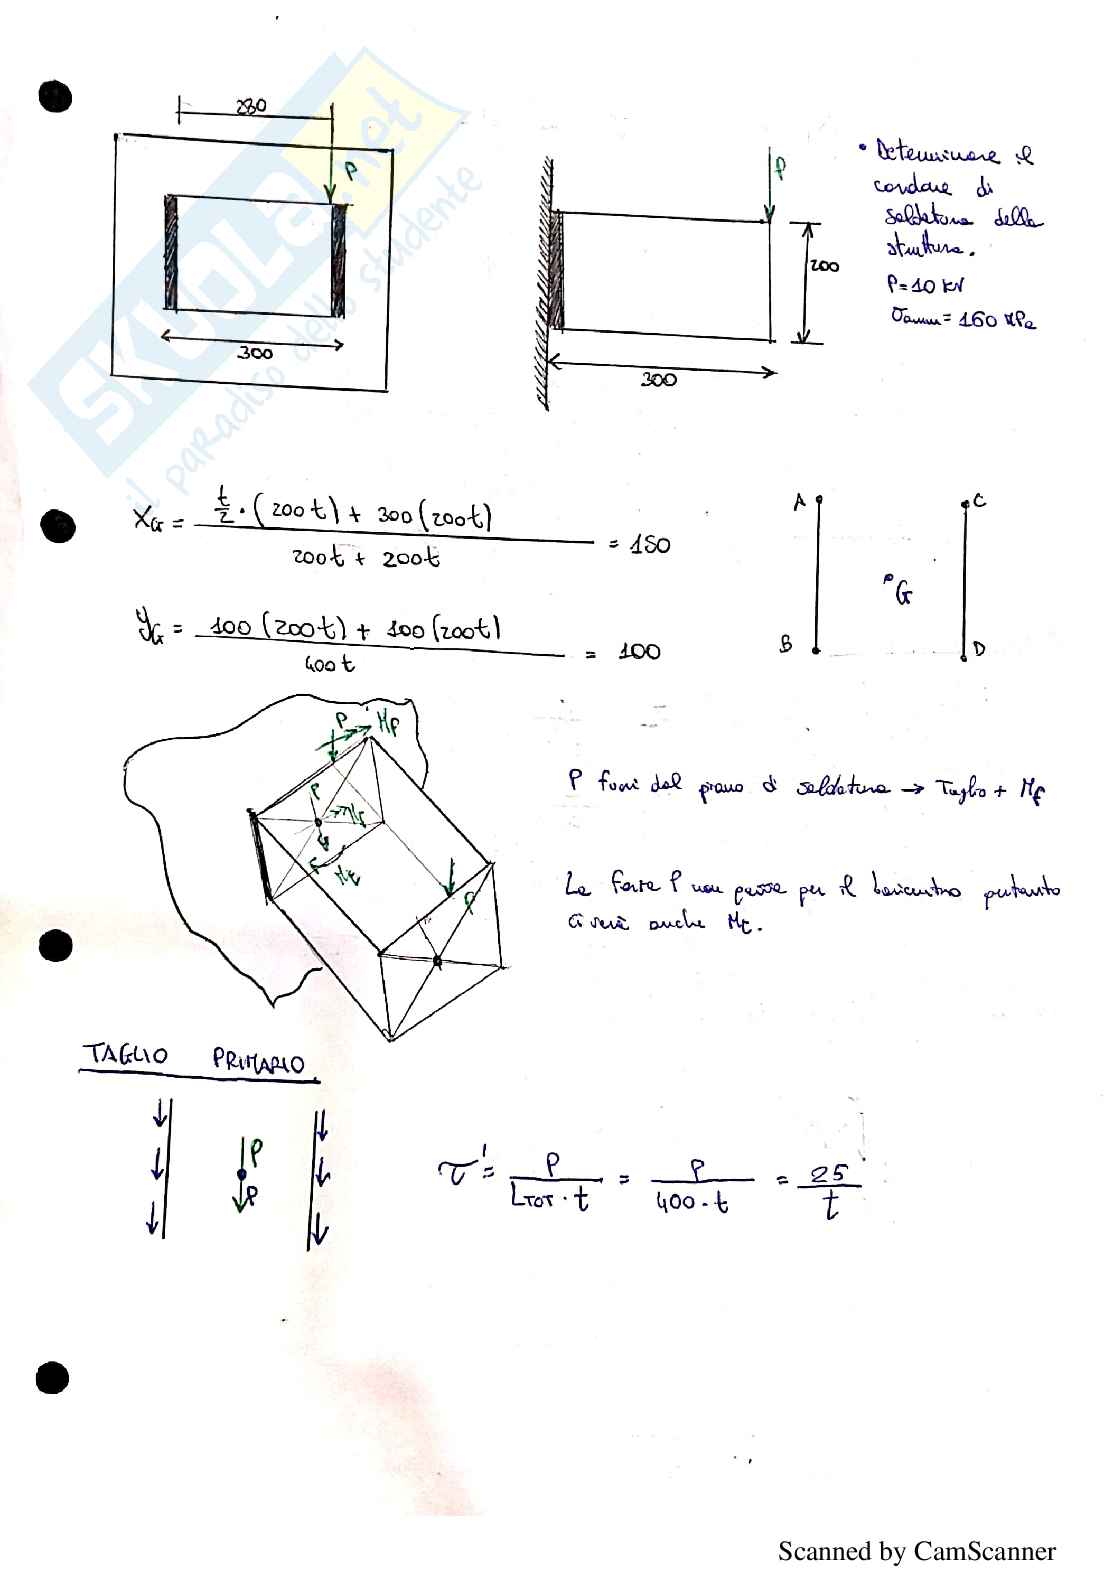 280
P
300
P
200
300
• Determinare il
cordone di
saldatura della
struttura.
P = 10 kN
σamm = 160 MPa
XG = t/2 · (200t) + 300 (200t) / 200t + 200t = 150
yG = 100 (200t) + 100 (200t) / 400t = 100
A
C
G
B
D
P
Mf
P
Mf
G
Mt
P
P fuori dal piano di saldatura → Taglio + Mf
La forza P non passa per il baricentro pertanto
ci sarà anche Mt.
TAGLIO PRIMARIO
P
P
τ' = P / LTOT · t = P / 400 · t = 25 / t
SKUOLA.net
il paradiso dello studente
Scanned by CamScanner